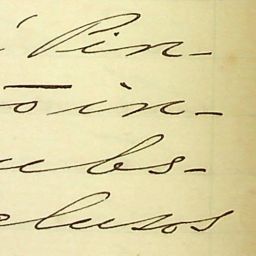 Pin-
to in-
ubs-
clusos